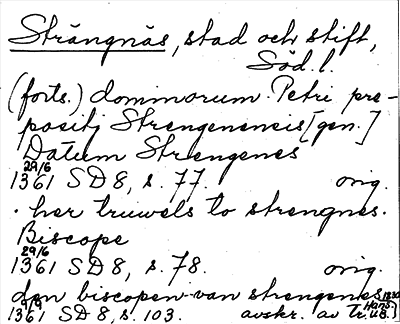 Strängnäs, stad och stift,
Söd. l.
(forts.) dominorum Petri pre-
positj Strengenensis [gen.]
Datum Strengenes
29/6
1361 SD 8, s. 77. orig.
. her truwels to strengnes.
Biscope
29/6
1361 SD 8, s. 78. orig.
den biscopen van strengenes
1361 SD 8, s. 103. avskr. av